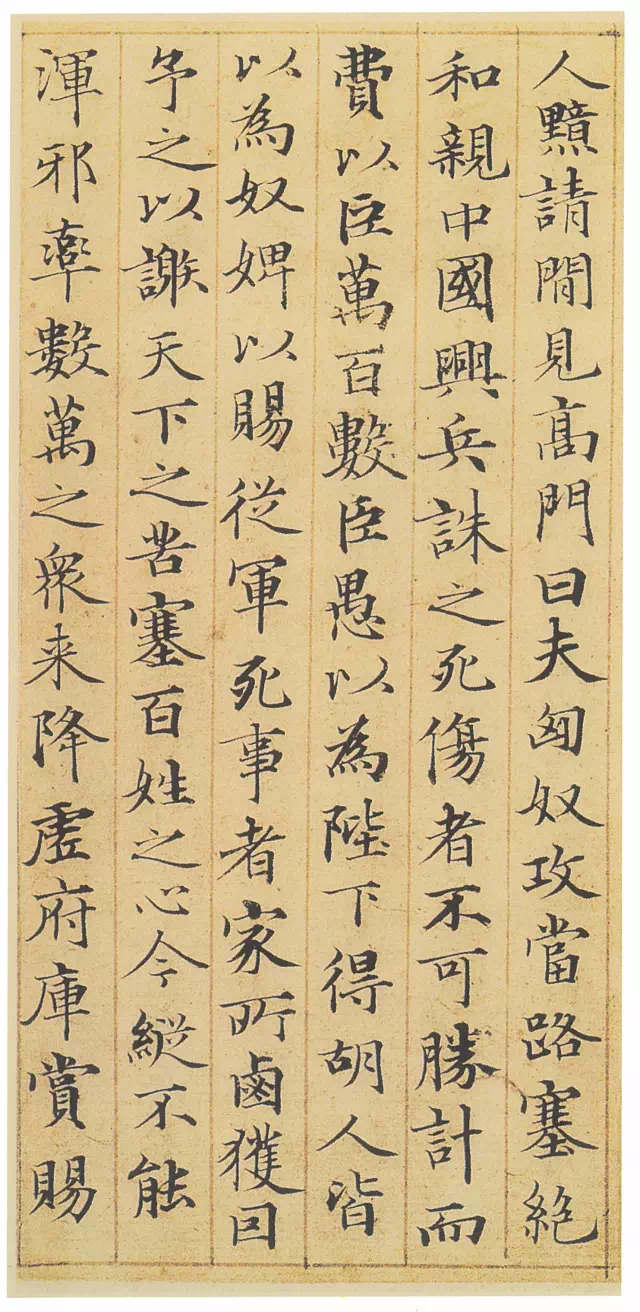 人黯請間見高門曰夫匈奴攻當路塞絶
和親中國興兵誅之死傷者不可勝計而
費以巨萬百數臣愚以為陛下得胡人皆
以為奴婢以賜從軍死事者家所鹵獲因
予之以謝天下之苦塞百姓之心今縱不能
渾邪率數萬之衆来降虛府庫賞賜